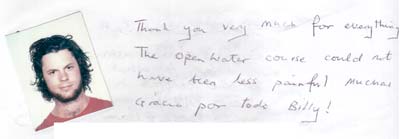 Thank you very much for everything
The open water course could not
have been less painful muchas
Gracia por todo Billy!